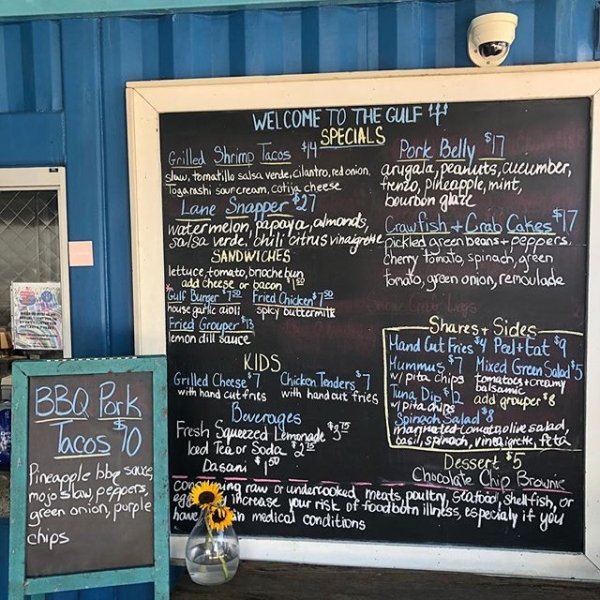 WELCOME TO THE GULF
SPECIALS
Grilled Shrimp Tacos $14
slaw, tomatillo salsa verde, cilantro, red onion,
Togarashi sour cream, cotija cheese
Lane Snapper $27
watermelon, papaya, almonds,
salsa verde, chili citrus vinaigrette
SANDWICHES
lettuce, tomato, brioche bun
add cheese or bacon $1.50
Gulf Burger $7.50 Fried Chicken $7.50
house garlic aioli spicy buttermilk
Fried Grouper $13
lemon dill sauce
KIDS
Grilled Cheese $7 Chicken Tenders $7
with hand cut fries with hand cut fries
Beverages
Fresh Squeezed Lemonade $3.75
Iced Tea or Soda $2.75
Dasani $1.50
Pork Belly $17
arugala, peanuts, cucumber,
frenzo, pineapple, mint,
bourbon glaze
Crawfish + Crab Cakes $17
pickled green beans + peppers,
cherry tomato, spinach, green
tomato, green onion, remoulade
Shares + Sides
Hand Cut Fries $4 Peel + Eat $9
Hummus $7 Mixed Green Salad $5
w/ pita chips tomatoes + creamy
balsamic
Tuna Dip $12 add grouper $8
w/ pita chips
Spinach Salad $8
marinated tomato, olive salad,
basil, spinach, vinaigrette, feta
Dessert $5
Chocolate Chip Brownie
consuming raw or undercooked meats, poultry, seafood, shellfish, or
eggs may increase your risk of foodborn illness, especialy if you
have medical conditions
BBQ Pork
Tacos $10
Pineapple bbq sauce,
mojo slaw, peppers,
green onion, purple
chips